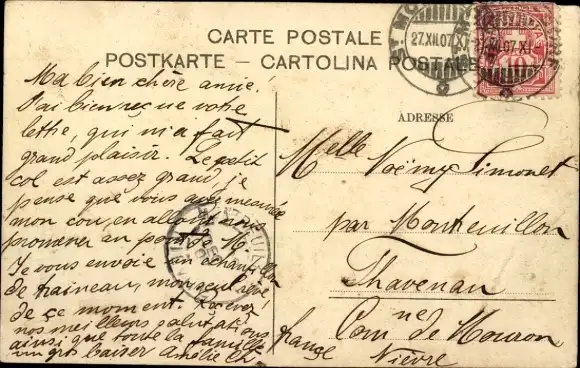 CARTE POSTALE
POSTKARTE – CARTOLINA POSTALE
27.XII.07.XI
10
ADRESSE
Ma bien chère amie!
J'ai bien reçue votre
lettre, qui m'a fait
grand plaisir. Le petit
col est assez grand, je
pense que vous avez mesurée
mon cou, en allant nous
promener au
Je vous envoie un échantillon
de traineau, mon seul rêve
de ce moment. Recevez
nos meilleurs salutations
ainsi que toute la famille
un gros baiser Amélie
Melle Noémy Simonet
par Montreuillon
Thavenau
Com ne de Mouron
Nièvre
france